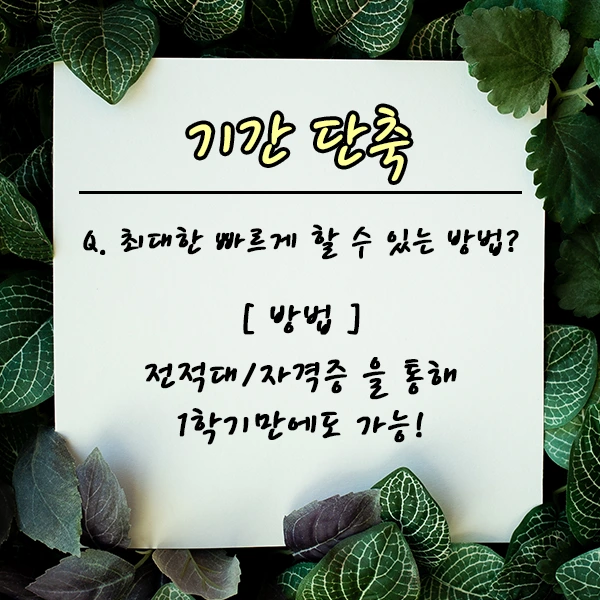 기간 단축
Q. 최대한 빠르게 할 수 있는 방법?
[ 방법 ]
전적대/자격증 을 통해
1학기만에도 가능!